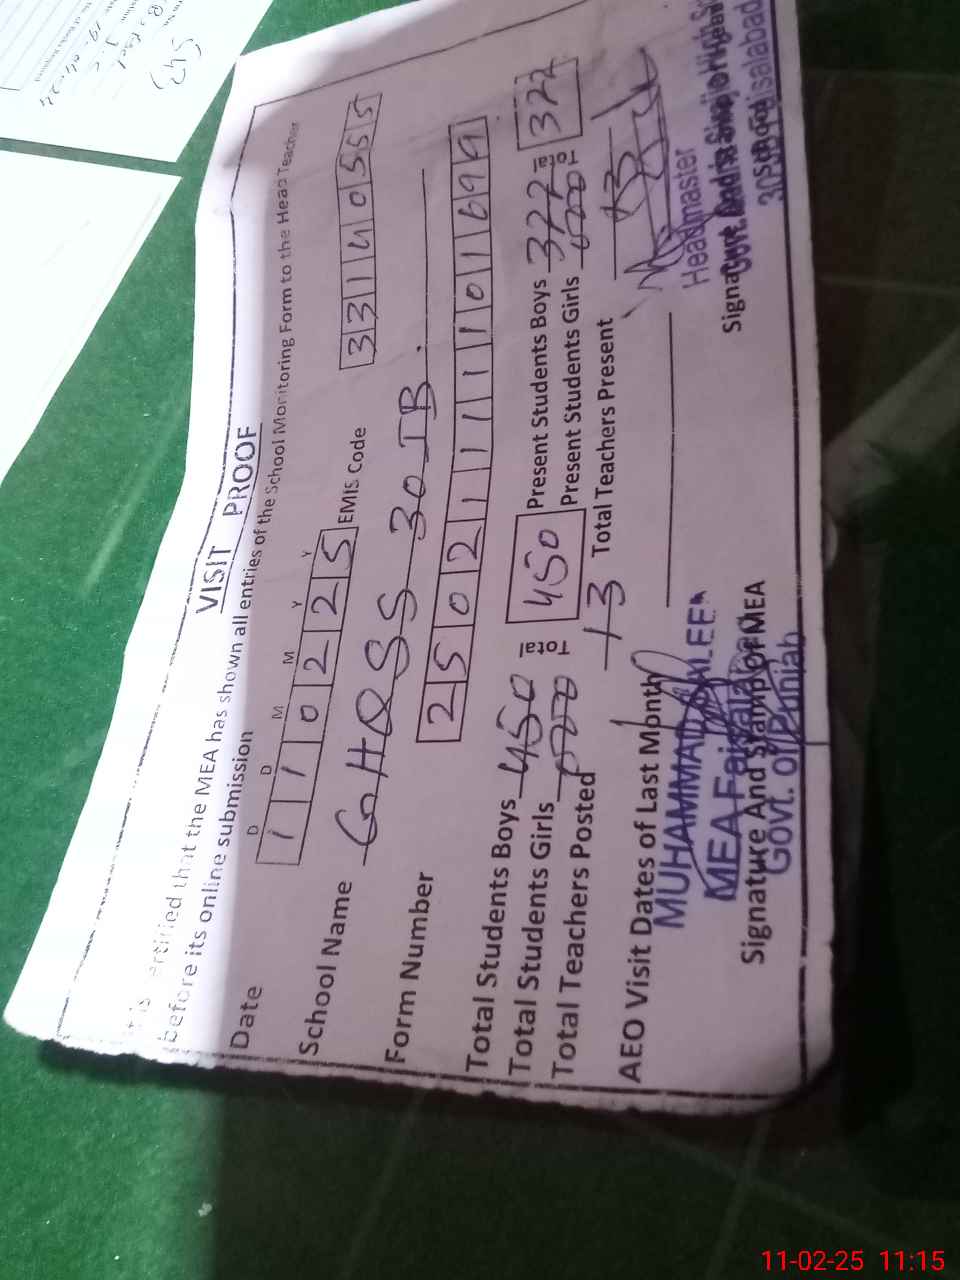 VISIT PROOF
It is certified that the MEA has shown all entries of the School Monitoring Form to the Head Teacher
before its online submission
D D M M Y Y
Date 1 1 0 2 2 5 EMIS Code 3 3 1 4 0 5 5 5
School Name GHSS 30 JB
Form Number 2 5 0 2 1 1 1 1 1 0 1 6 9
Total Students Boys 450 Total 450 Present Students Boys 322 Total 322
Total Students Girls 000 Present Students Girls 000
Total Teachers Posted 13 Total Teachers Present 13
AEO Visit Dates of Last Month
MUHAMMAD
MEA Faisalabad
Govt. of Punjab
Signature And Stamp of MEA
Headmaster
Signature And Stamp of Head
School
30 JB Faisalabad
11-02-25 11:15